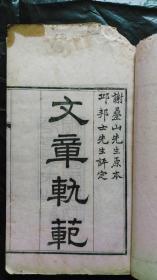 謝疊山先生原本
邱邦士先生評定
文章軌範